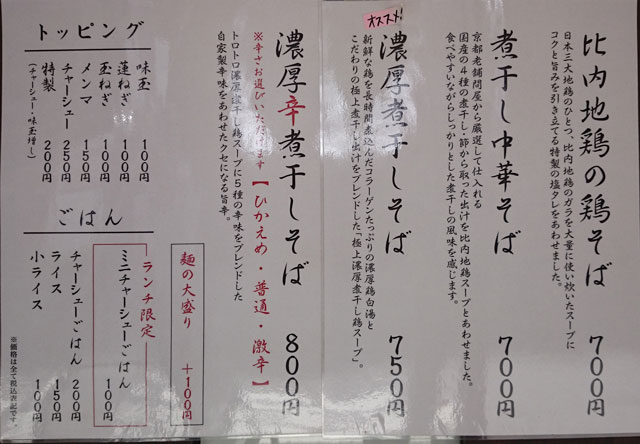 比内地鶏の鶏そば 700円
日本三大地鶏のひとつ、比内地鶏のガラを大量に使い炊いたスープに
コクと旨みを引き立てる特製の塩タレをあわせました。
煮干し中華そば 700円
京都老舗問屋から厳選して仕入れる
国産の4種の煮干し・節から取った出汁を比内地鶏スープとあわせました。
食べやすいながらしっかりとした煮干しの風味を感じます。
オススメ!
濃厚煮干しそば 750円
新鮮な鶏を長時間煮込んだコラーゲンたっぷりの濃厚鶏白湯と
こだわりの極上煮干し出汁をブレンドした「極上濃厚煮干し鶏スープ」。
濃厚辛煮干しそば 800円
※辛さお選びいただけます【ひかえめ・普通・激辛】
トロトロ濃厚煮干し鶏スープに5種の辛味をブレンドした
自家製辛味をあわせたクセになる旨辛。
トッピング
味玉 100円
蓮ねぎ 100円
玉ねぎ 100円
メンマ 150円
チャーシュー 250円
特製 200円
(チャーシュー・味玉増し)
ごはん
麺の大盛り +100円
ランチ限定
ミニチャーシューごはん 100円
チャーシューごはん 200円
ライス 150円
小ライス 100円
※価格は全て税込表記です。